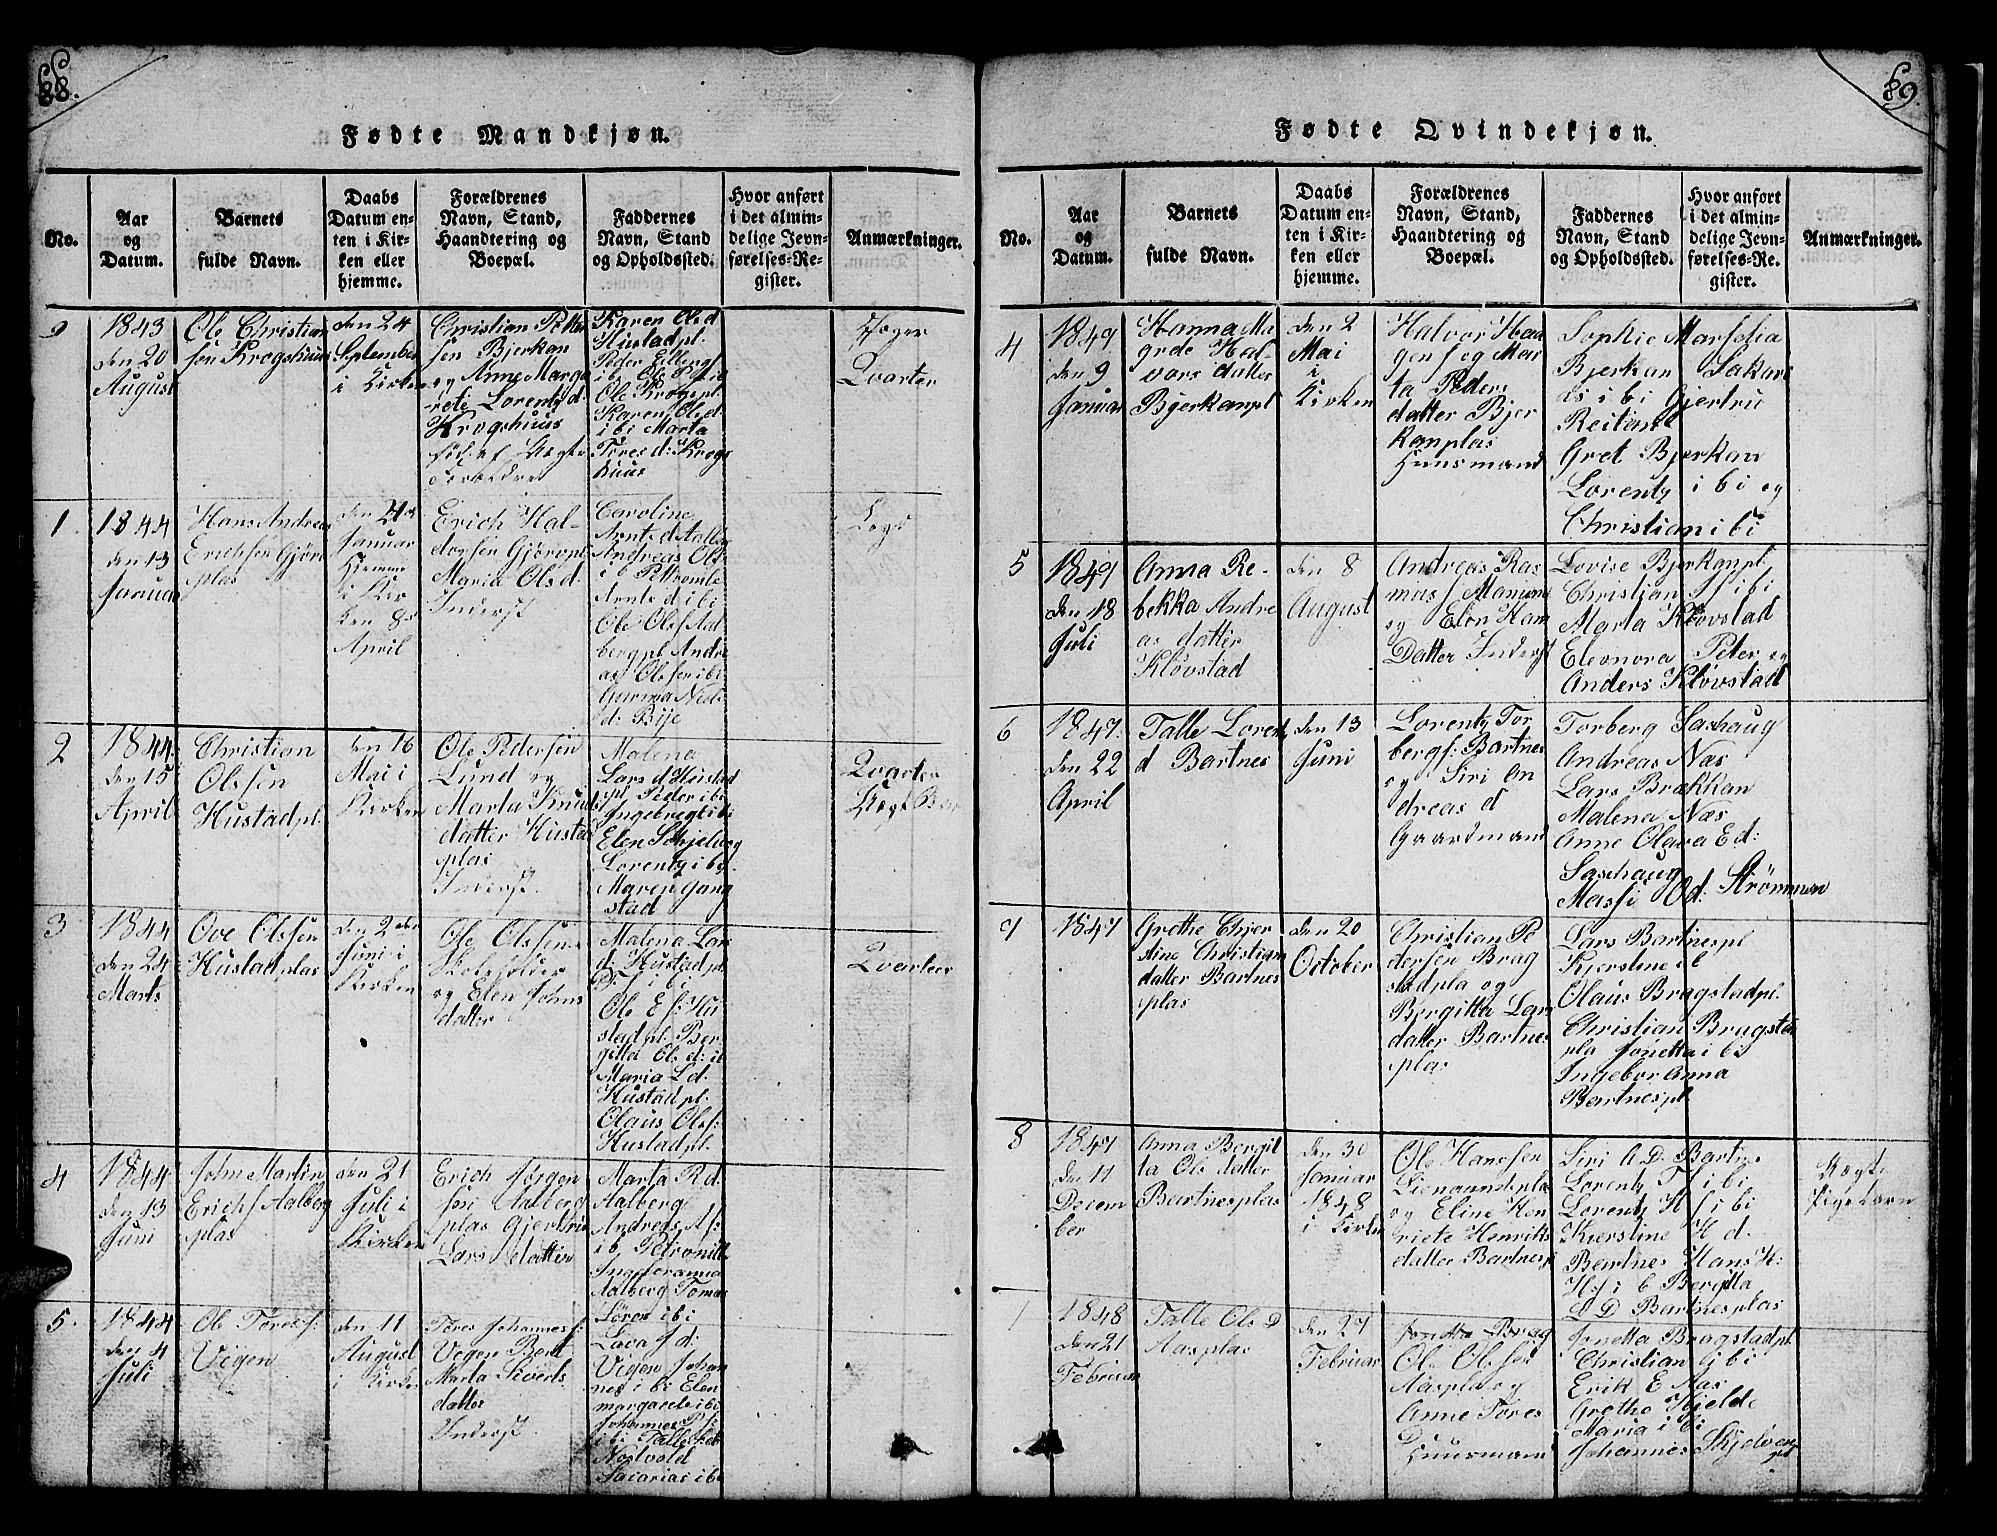 88.
Fødte Mandkjøn.
No.
Aar
og
Datum.
Barnets
fulde Navn.
Daabs
Datum en-
ten i Kir-
ken eller
hjemme.
Forældrenes
Navn, Stand,
Haandtering og
Boepæl.
Faddernes
Navn, Stand
og Opholdssted.
Hvor anført
i det almin-
delige Jevn-
førelses-Re-
gister.
Anmærkninger.
1843
den 20
August
Ole Christian
sen Krogshuus
den 24
September
i Kirken
Christian Petter
sen Bjerkan
og Anne Marga
rete Lorentz d.
Krogshuus
Karen Ols d
Hustadpl.
Peder
Ole Krogspl.
Karen Ols d.
i bi Marta
Tores d: Krogs
huus
Qvarter
1.
1844
den 13
Januar
Hans Andreas
Erichsen Gjørv
plas
den 24de
Januar
Hjemme
i Kir
ken 8de
April
Erich Hal-
dorsen Gjørvpl
Maria Ols d.
Inderst
Caroline
Arnts d Aalberg
Andreas Ols
i b
Arnts d i bi
Ole Olsf Aal
bergpl Andre
as Olssen i bi
d: Bije
2
1844
den 15
April
Christian
Olssen
Hustadpl.
den 16
Mai i
Kirken
Ole Pedersen
Lund og
Marta Knuds
datter Hustad
plas
Inderst.
Malena
Lars d Hustad
pl Peder i bi
Ingebregt i bi
Elen Schjelberg
Lorentz i by
Maren Gang
stad
Qvarter
3
1844
den 24
Marts
Ove Olssen
Hustadplas
den 2den
Juni i
Kirken
Ole Olssen
og Elen Johns
datter
Malena Lars
d: Hustadpl
Ole E f: Hu
stadpl Ber
gitta Ols d: ib
Maria L d.
Hustadpl.
Olaus Olsf:
Hustadpl.
Qvarteer
4
1844
den 13
Juni
John Martin
Erichsf Aalberg
plas
den 21
Juli i
Kirken
Erich Jørgen
sen Aalberg
plas Gjertrue
Lars datter
Marta R d.
Aalberg
Andreas A f:
i b, Petronille
Aalberg Tomas
Løren i bi
5.
1844
den 4
Juli
Ole Toresf:
Vigen
den 11
August
i Kirken
Tores Johannesf:
Vigen
Marta Siverts
datter
Inderst.
Lava J d:
Vigen Johan
nes i bi Elen
margarete i bi
Johannes P f:
i bi Talle
Nostvold
Sacarias i bi
89.
Fødte Qvindekjøn.
No.
Aar
og
Datum.
Barnets
fulde Navn.
Daabs
Datum en-
ten i Kir-
ken eller
hjemme.
Forældrenes
Navn, Stand,
Haandtering og
Boepæl.
Faddernes
Navn, Stand
og Opholdssted.
Hvor anført
i det almin-
delige Jevn-
førelses-Re-
gister.
Anmærkninger.
4
1847
den 9
Januar
Hanna Ma
grede Hal-
vors datter
Bjerkanpl
den 2
Mai
i
Kirken
Halvor Haa
gensf og Mar
ta Peders
datter Bjer
kanplas
Huusmand
Sophie Marselia
Bjerkan Sakari
as i bi Gjertru
Reitan
Gret Bjerkan
Lorentz i bi og
Christian i bi
5
1847
den 18
Juli
Anna Re-
bekka Andre
as datter
Kløvstad
den 8
August
Andreas Ras
mus f
og Elen Han
Datter Inderst
Lovise Bjerkanpl
Christian J f i bi
Marta Kløvstad
Eleonora Peter og
Anders Kløvstad
6
1847
den 22
April
Talle Lorentz
d Bartnes
den 13
Juni
Lorentz Tor
bergf: Bartnes
og Siri An
dreas d
Gaardmand
Torberg Saxhaug
Andreas Næs
Lars Brækkan
Malena Næs
Anne Olava E d:
Saxhaug
Massi O d: Strømmen
7
1847
Grethe Chjer
stine Christian
datter Bartnes
plas
den 20
October
Christian Pe
dersen Brag
stadpla og
Bergitta Lars
datter Bartnes
plas
Lars Bartnespl
Kjerstine i b
Olaus Bragstadpl.
Christian Brugsta
pla Jonetta i bi
Ingebor Anna
Bartnespl
8
1847
den 11
Decem
ber
Anna Bergit
ta Ols datter
Bartnesplas
den 30
Januar
1848
i Kirken
Ole Hanssen
og Eline Hen
riete Henriks
datter Bartnes
Siri A D. Bartnes
Lorentz T f i bi
Lorentz H f i bi
Kierstine H d.
Bartnes Hans H:
H f i b Bergitta
L D Bartnesplas
Ægte
Pigebarn
1
1848
den 21
Februar
Talle Ols D
Aasplas
den 27
Februar
Jonetta Brag
Ole Olssen
Aaspla og
Anne Tores
D
Huusmand
Jonetta Bragstadpl
Christian i bi
Erik E Aas
Grethe Hjelde
Maria i bi
Johannes Skjelven